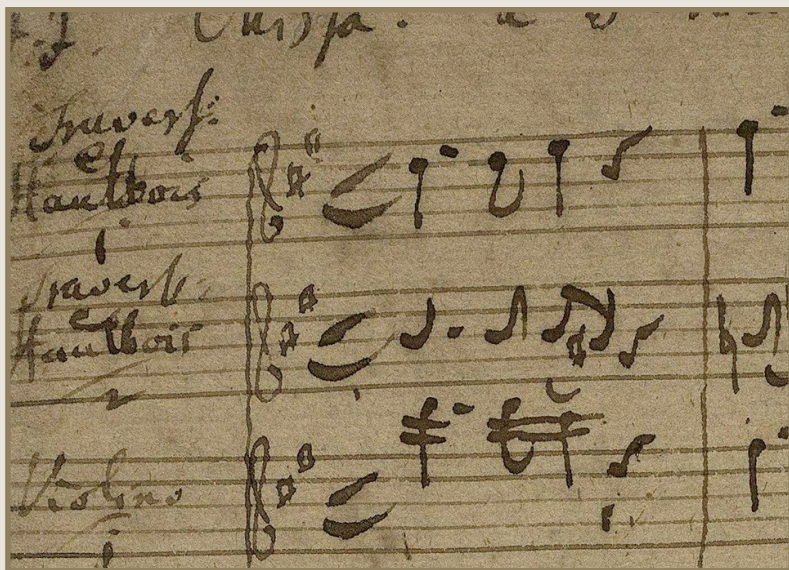 Travers:
et
Hautbois
1
Travers:
et
Hautbois
2
Violino
1